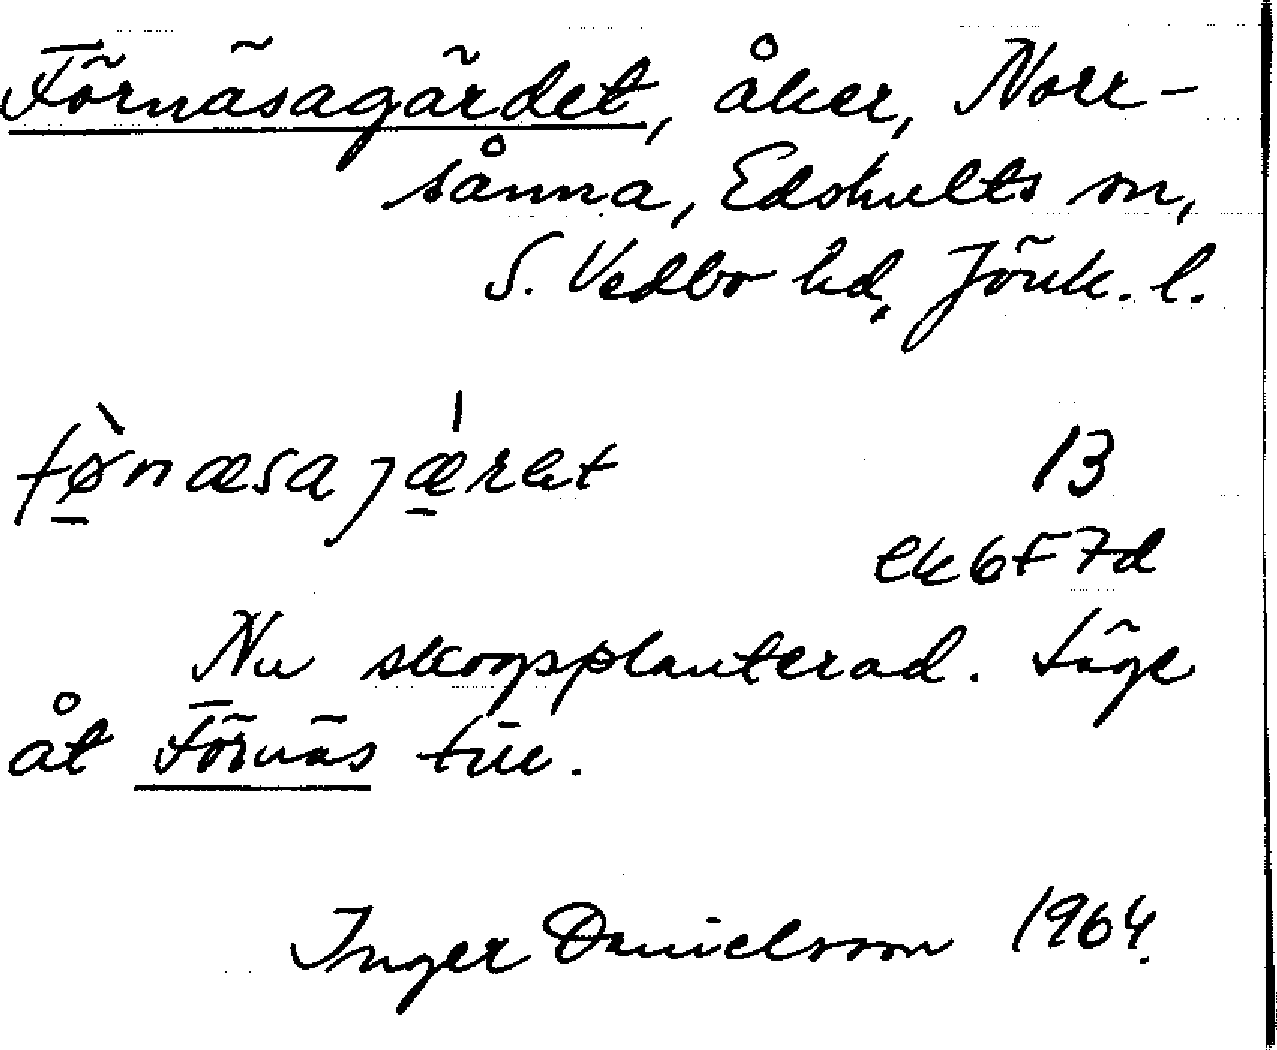 Förnäsagärdet, åker, Norr-
sånna, Edshults sn,
S. Vedbo hd, Jönk. l.
fø̀næsajǽrət 13
ek 6F7d
Nu skogsplanterad. Läge
åt Förnäs till.
Inger Danielsson 1964.